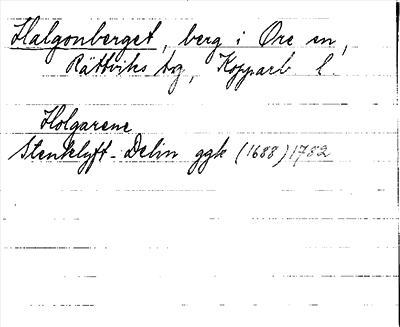 Halgonberget, berg i Ore sn,
Rättviks tg, Kopparb l.
Holgarene
Stenklyft - Delin ggk (1688) 1782